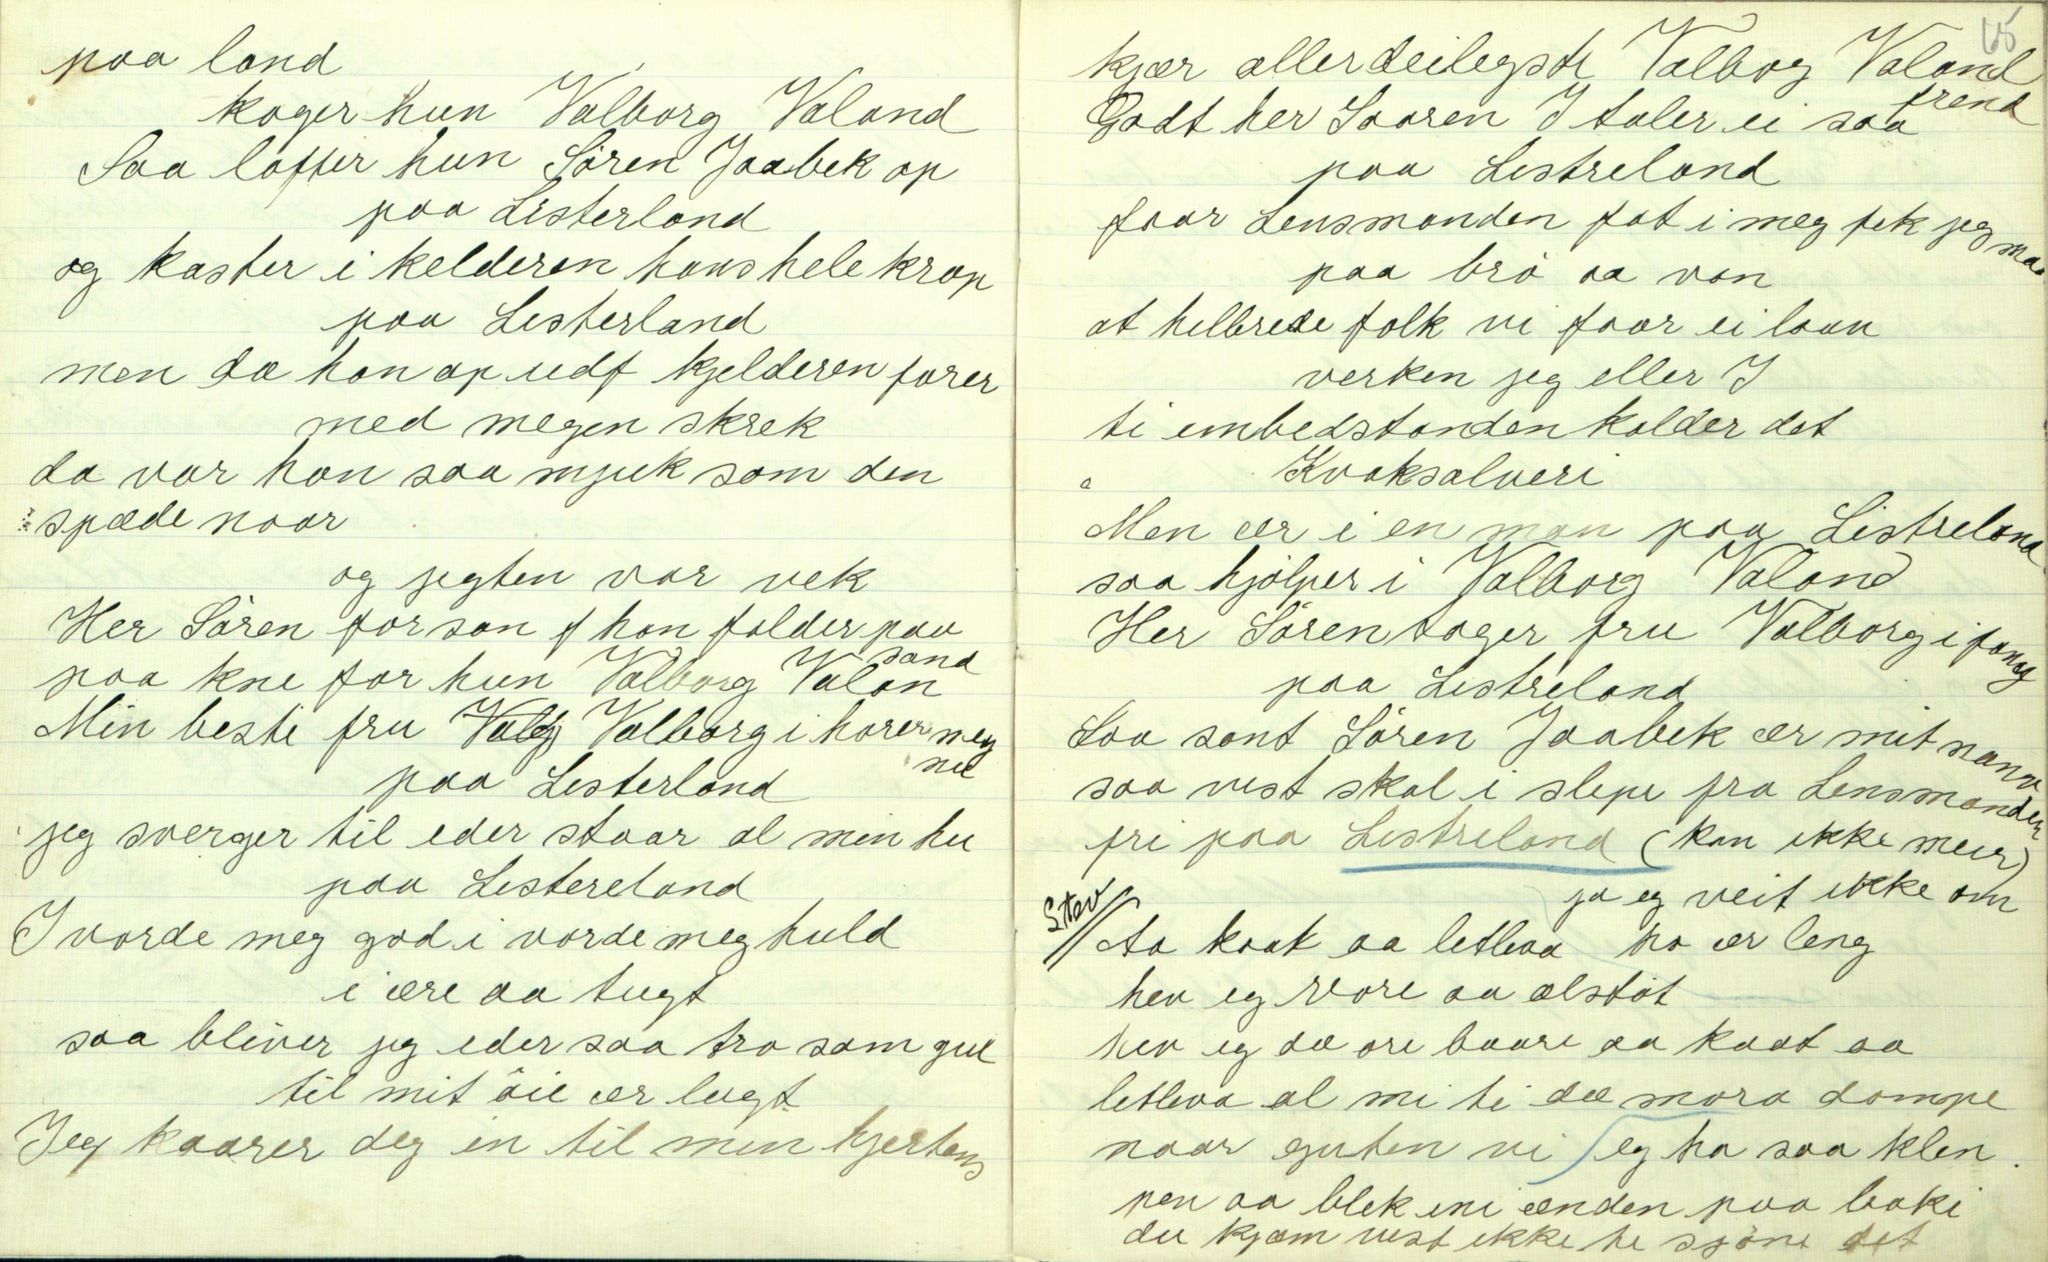 paa land
koger hun Valborg Valand
Saa løfter hun Sören Jaabek op
paa Listerland
og kaster i kelderen hans hele krop
paa Listerland
men da han op udf kjelderen farer
med megen skrek
da var han saa mjuk som den
spæde naar
og jegten var vek
Her Sören forsan f han falder paa
sand
paa kne for hun Valborg Valan
Min beste fru Valg Valborg i hører meg
nu
paa Listerland
jeg sverger til eder staar al min hu
paa Listereland
I vorde meg god i vorde meg huld
i ære aa tugt
saa bliver jeg eder saa tro som gul
til mit öie er lugt
Jeg kaarer deg en til min hjertens
65
kjær allerdeilegste Valbog Valand
Godt her Sooren I taler ei saa frend
paa Listreland
faar Lensmanden fat i meg fek jeg maa
paa brö aa van
at helbrede folk vi faar ei laan
verken jeg eller I
ti embedstanden kalder det
Kvaksalveri
Men ær i en man paa Listreland
saa hjölper i Valborg Valand
Her Sören tager fru Valborg i fang
paa Listreland
Saa sant Sören Jaabek ær mit navn
saa vist skal i slepe fra Lensmanden
fri paa Listreland (kan ikke meir)
ja eg veit ikke om
Stev
Aa kaat aa letleva no ær leng
hev eg vore aa ælstöt
hev eg dæ ore baare aa kaat aa
letleva al mi ti dæ mora dompe
naar guten vi eg ha saa klen
pen aa blek ini ænden paa baki
du kjæm vist ikke te sjöne det